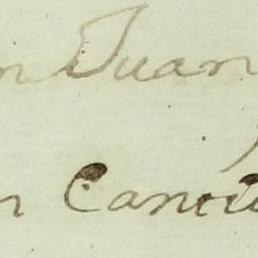 n Juan
n Canciu